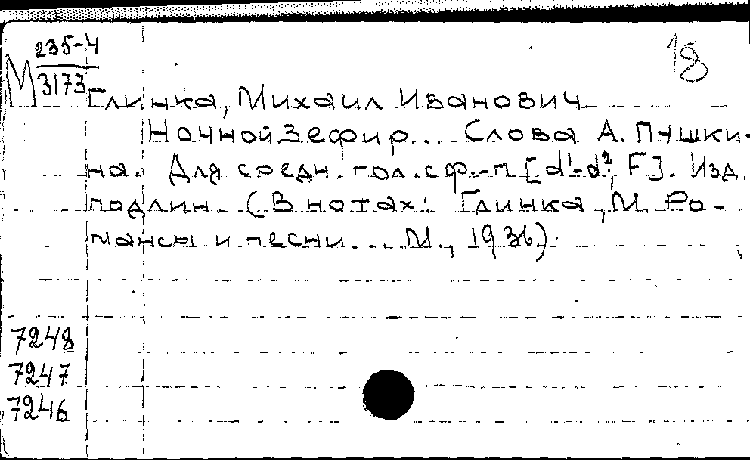 235-4
М 3173
18
Глинка, Михаил Иванович
Ночной зефир... Слова А. Пушки-
на. Для средн. гол. с ф.-п. [d¹-d², F]. Изд.
подлин. (В нотах: Глинка, М. Ро-
мансы и песни... М., 1936).
7248
7247
7246